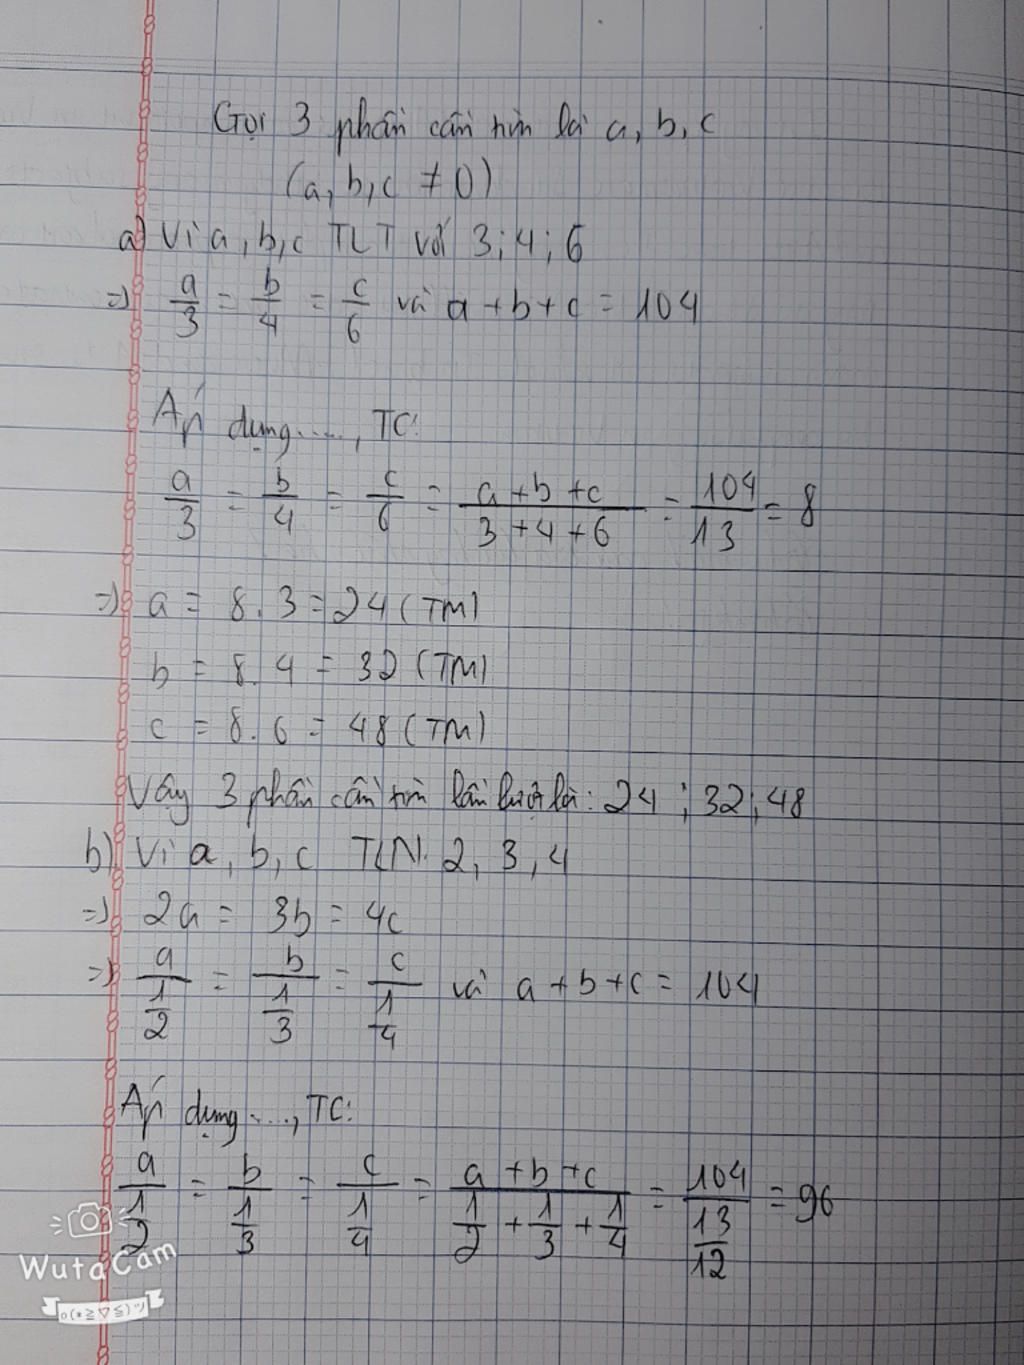 Gọi 3 phần cần tìm là a, b, c
(a, b, c ≠ 0)
a) Vì a, b, c TLT với 3; 4; 6
=) a/3 = b/4 = c/6 và a + b + c = 104
Áp dụng....., TC:
a/3 = b/4 = c/6 = (a + b + c)/(3 + 4 + 6) = 104/13 = 8
=) a = 8. 3 = 24 (TM)
b = 8. 4 = 32 (TM)
c = 8. 6 = 48 (TM)
Vậy 3 phần cần tìm lần lượt là: 24 ; 32; 48
b) Vì a, b, c TLN. 2, 3, 4
=) 2a = 3b = 4c
=) a/(1/2) = b/(1/3) = c/(1/4) và a + b + c = 104
Áp dụng ...., TC:
a/(1/2) = b/(1/3) = c/(1/4) = (a + b + c)/(1/2 + 1/3 + 1/4) = 104/(13/12) = 96
WutaCam
o(*≧▽≦)ツ